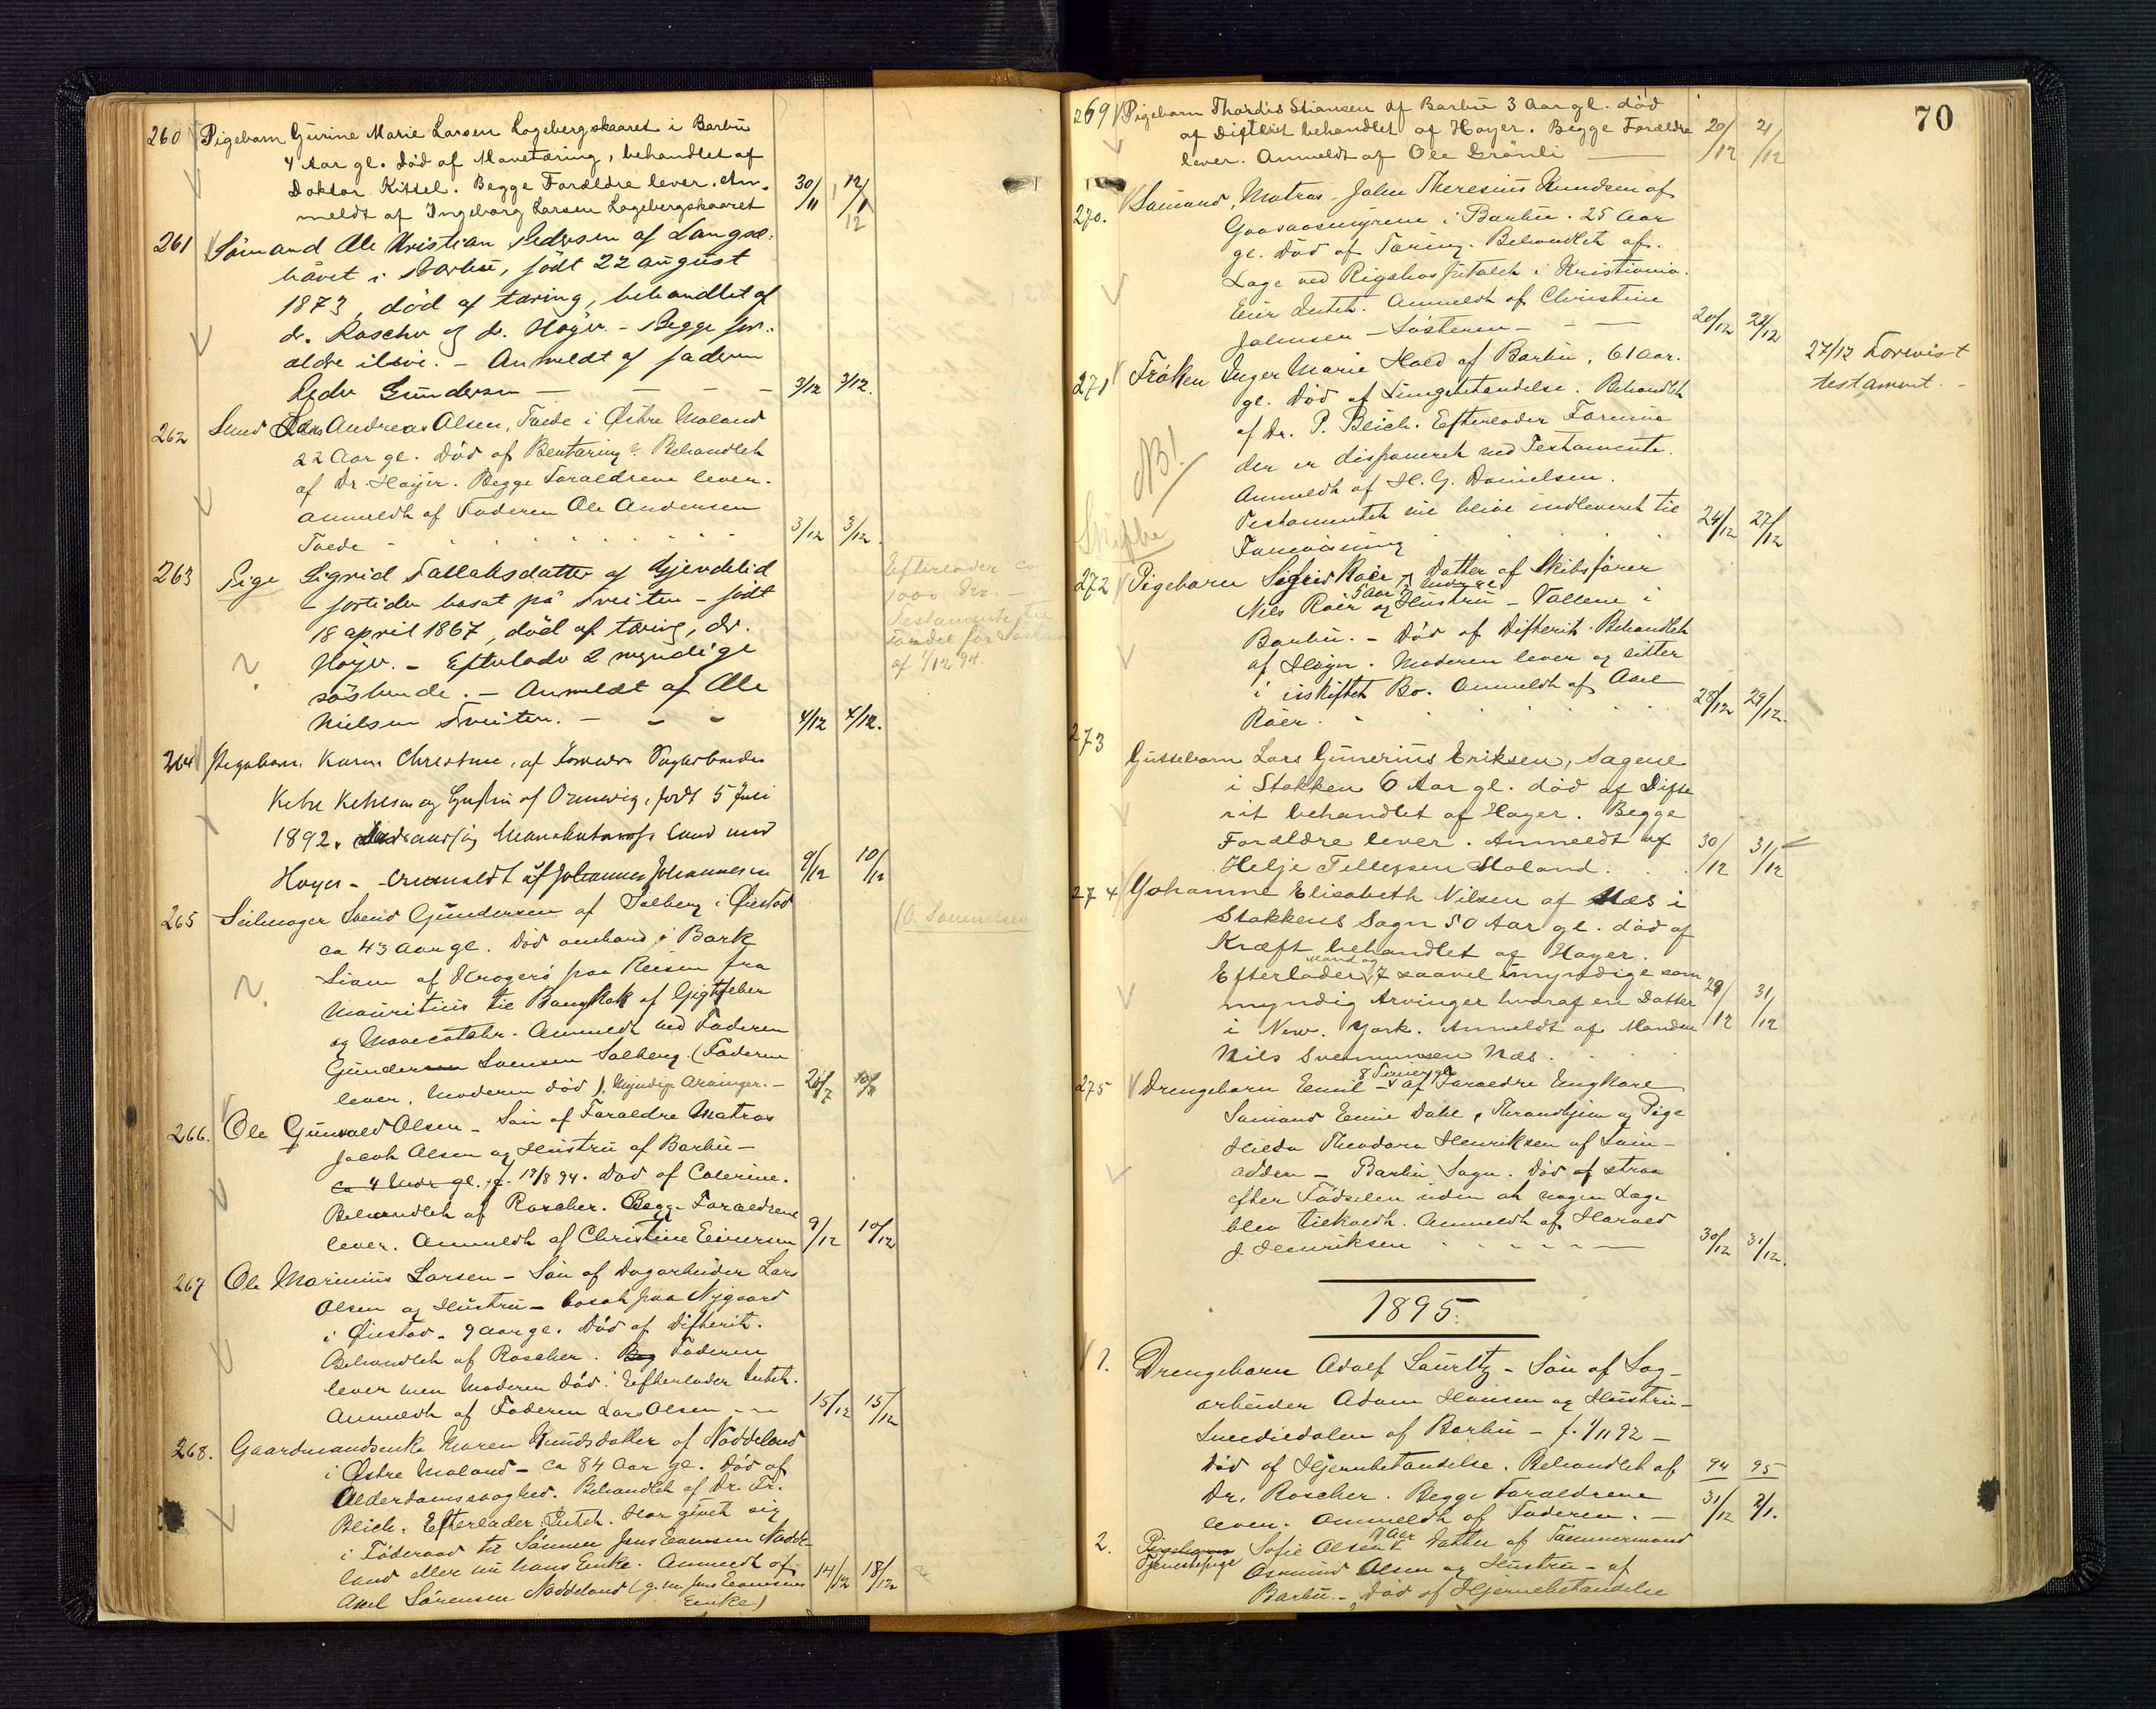 260 Pigebarn Gurine Marie Larsen Lagebergskaaret i Barbu
4 Aar gl. Død af Mavetæring, behandlet af
Doktor Kittel. Begge Forældre lever. An-
meldt af Ingeborg Larsen Lagebergskaaret 30/11 12/12
261 Sömand Ole Kristian Pedersen af Langsæ-
håvet i Barbu, født 22 august
1873, død af tæring, behandlet af
dr. Roscher og dr. Høyer. - Begge for-
ældre ilive. - Anmeldt af faderen
Peder Gundersen - 3/12 3/12.
262 Smed Andreas Olsen, Tvede i Østre Moland
22 Aar gl. Død af Bentæring. Behandlet
af Dr. Høyer. Begge Forældrene lever.
Anmeldt af Faderen Ole Andersen
Tvede 3/12 3/12.
263 Pige Sigrid Tallaksdatter af Gjendelid
- fortiden bosat på Tveiten - født
18 april 1867, død af tæring, dr.
Høyer. - Efterlader 2 myndige
søskende. - Anmeldt af Ole
Nielsen Tveiten. - 4/12 4/12.
Efterlader ca
1000 Kr. -
Testamente
af 1/12 94.
264 Pigebarn Karen Christine, af Forældre
Ketil Ketilsen og Hustru af, født 5 Juli
1892.
Høyer - Anmeldt af Johannes Johannesen 9/12 10/12
265 Seilmager Svend Gundersen af Solberg i Øiestad
ca 43 Aar gl. Død ombord i Bark
Siam af Kragerø paa Reisen fra
Mauritius til Bangkok af Gigtfeber
og Mavecatahr. Anmeldt ved Faderen
Gunder Svensen Solberg. (Faderen
lever, Moderen død). Myndige Arvinger. - 26/7
266. Ole Gunvald Olsen - Søn af Forældre Matros
Jacob Olsen og Hustru af Barbu -
ca 4 Mdr gl. f. 19/8 94. Død af Colerine.
Behandlet af Roscher. Begge Forældrene
lever. Anmeldt af Christine Einersen 9/12 10/12
267 Ole Marinius Larsen - Søn af Dagarbeider Lars
Olsen og Hustru - bosat paa Nygaard
i Øiestad. 9 Aar gl. Død af Difterit.
Behandlet af Roscher. Beg Faderen
lever men Moderen død. Efterlader Intet.
Anmeldt af Faderen Lars Olsen 15/12 15/12
268. Gaardmandsenke Maren Knudsdatter af Noddeland
i Østre Moland - ca 84 Aar gl. Død af
Alderdomssvaghed. Behandlet af Dr. Fr.
Blich. Efterlader Intet. Har givet sig
i Føderaad til Sønnen Jens Evensen Nodde-
land eller nu hans Enke. Anmeldt af
Axel Sörensen Noddeland (g. m. Jens Evensens
Enke) 14/12 18/12
70
269 Pigebarn Thordis Stiansen af Barbu 3 Aar gl. død
af Difterit behandlet af Høyer. Begge Forældre
lever. Anmeldt af Ole Grönli 20/12 21/12
270. Sømand, Matros John Theresius Knudsen af
Gaasaasmyrene i Barbu. 25 Aar
gl. Død af Tæring. Behandlet af
Læge ved Rigshospitalet i Kristiania.
Eier Intet. Anmeldt af Christine
Johnsen - Søsteren - 20/12 22/12
271 Frøken Inger Marie Hald af Barbu, 61 Aar.
gl. Død af Lungebetændelse. Behandlet
af Dr. P. Blich. Efterlader Formue
der er disponeret ved Testamente.
Anmeldt af H. G. Danielsen.
Testamentet vil blive indleveret til
Forevisning 24/12 27/12
NB!
27/12 Forevist
testament. -
272 Pigebarn Sigrid Roër, Datter af Skibsfører
5 Aar
Nils Roër og Hustru - Vallene i
Barbu. - Død af Difterit. Behandlet
af Høyer. Moderen lever og sitter
i uskiftet Bo. Anmeldt af Axel
Roër. 28/12 29/12.
273
Guttebarn Lars Gunerius Eriksen, Sagene
i Stokken 6 Aar gl. død af Difte
rit behandlet af Høyer. Begge
Forældre lever. Anmeldt af
Helje Tellefsen Holand. 30/12 31/12
274 Johanne Elisabeth Nilsen af Næs i
Stokkens Sogn 50 Aar gl. død af
Kræft behandlet af Høyer.
Mand og
Efterlader 7 saavel umyndige som
myndig Arvinger hvoraf en Datter
i New. York. Anmeldt af Manden
Nils Svenumsen Næs. 29/12 31/12
275 Drengebarn Emil - af Forældre Ungkare
Sømand Emil Dahl, Throndhjem og Pige
Hilda Theodora Henriksen af
- Barbu Sogn. Død af strax
efter Fødselen uden at nogen Læge
blev tilkaldt. Anmeldt af Harald
J. Henriksen 30/12 31/12.
1895.
1. Drengebarn Adolf Lauritz - Søn af Sag-
arbeider Adam Hansen og Hustru -
Smediedalen af Barbu - f. 1/11 92 -
Død af Hjernebetændelse. Behandlet af
Dr. Roscher. Begge Forældrene
lever. Anmeldt af Faderen. - 94 31/12 95 2/1.
2. Pigebarn Sofie Olsen Datter af Tømmermand
Tjenestepige Osmund Olsen og Hustru - af
Barbu. - Død af Hjernebetændelse